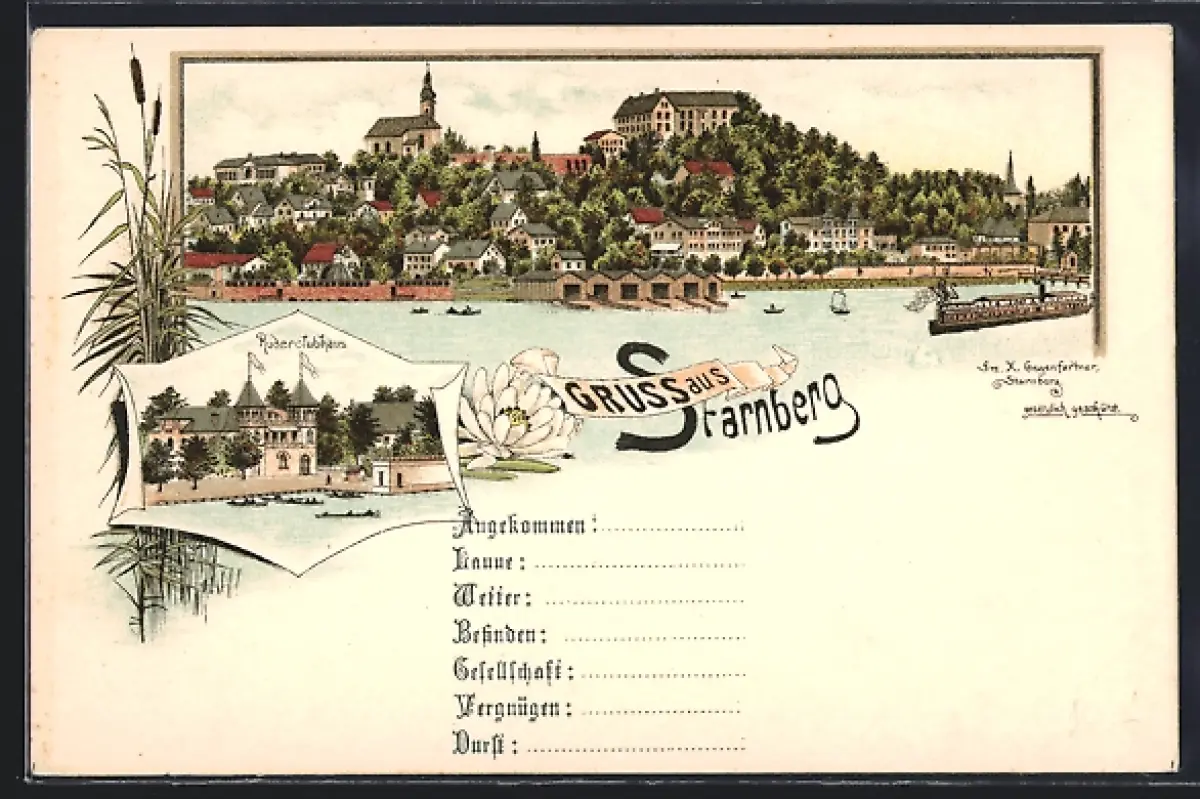 Ruderclubhaus
GRUSS aus
Starnberg
Fr. X.
Starnberg
gesetzlich geschützt.
Angekommen:
Laune:
Wetter:
Befinden:
Gesellschaft:
Vergnügen:
Durst: